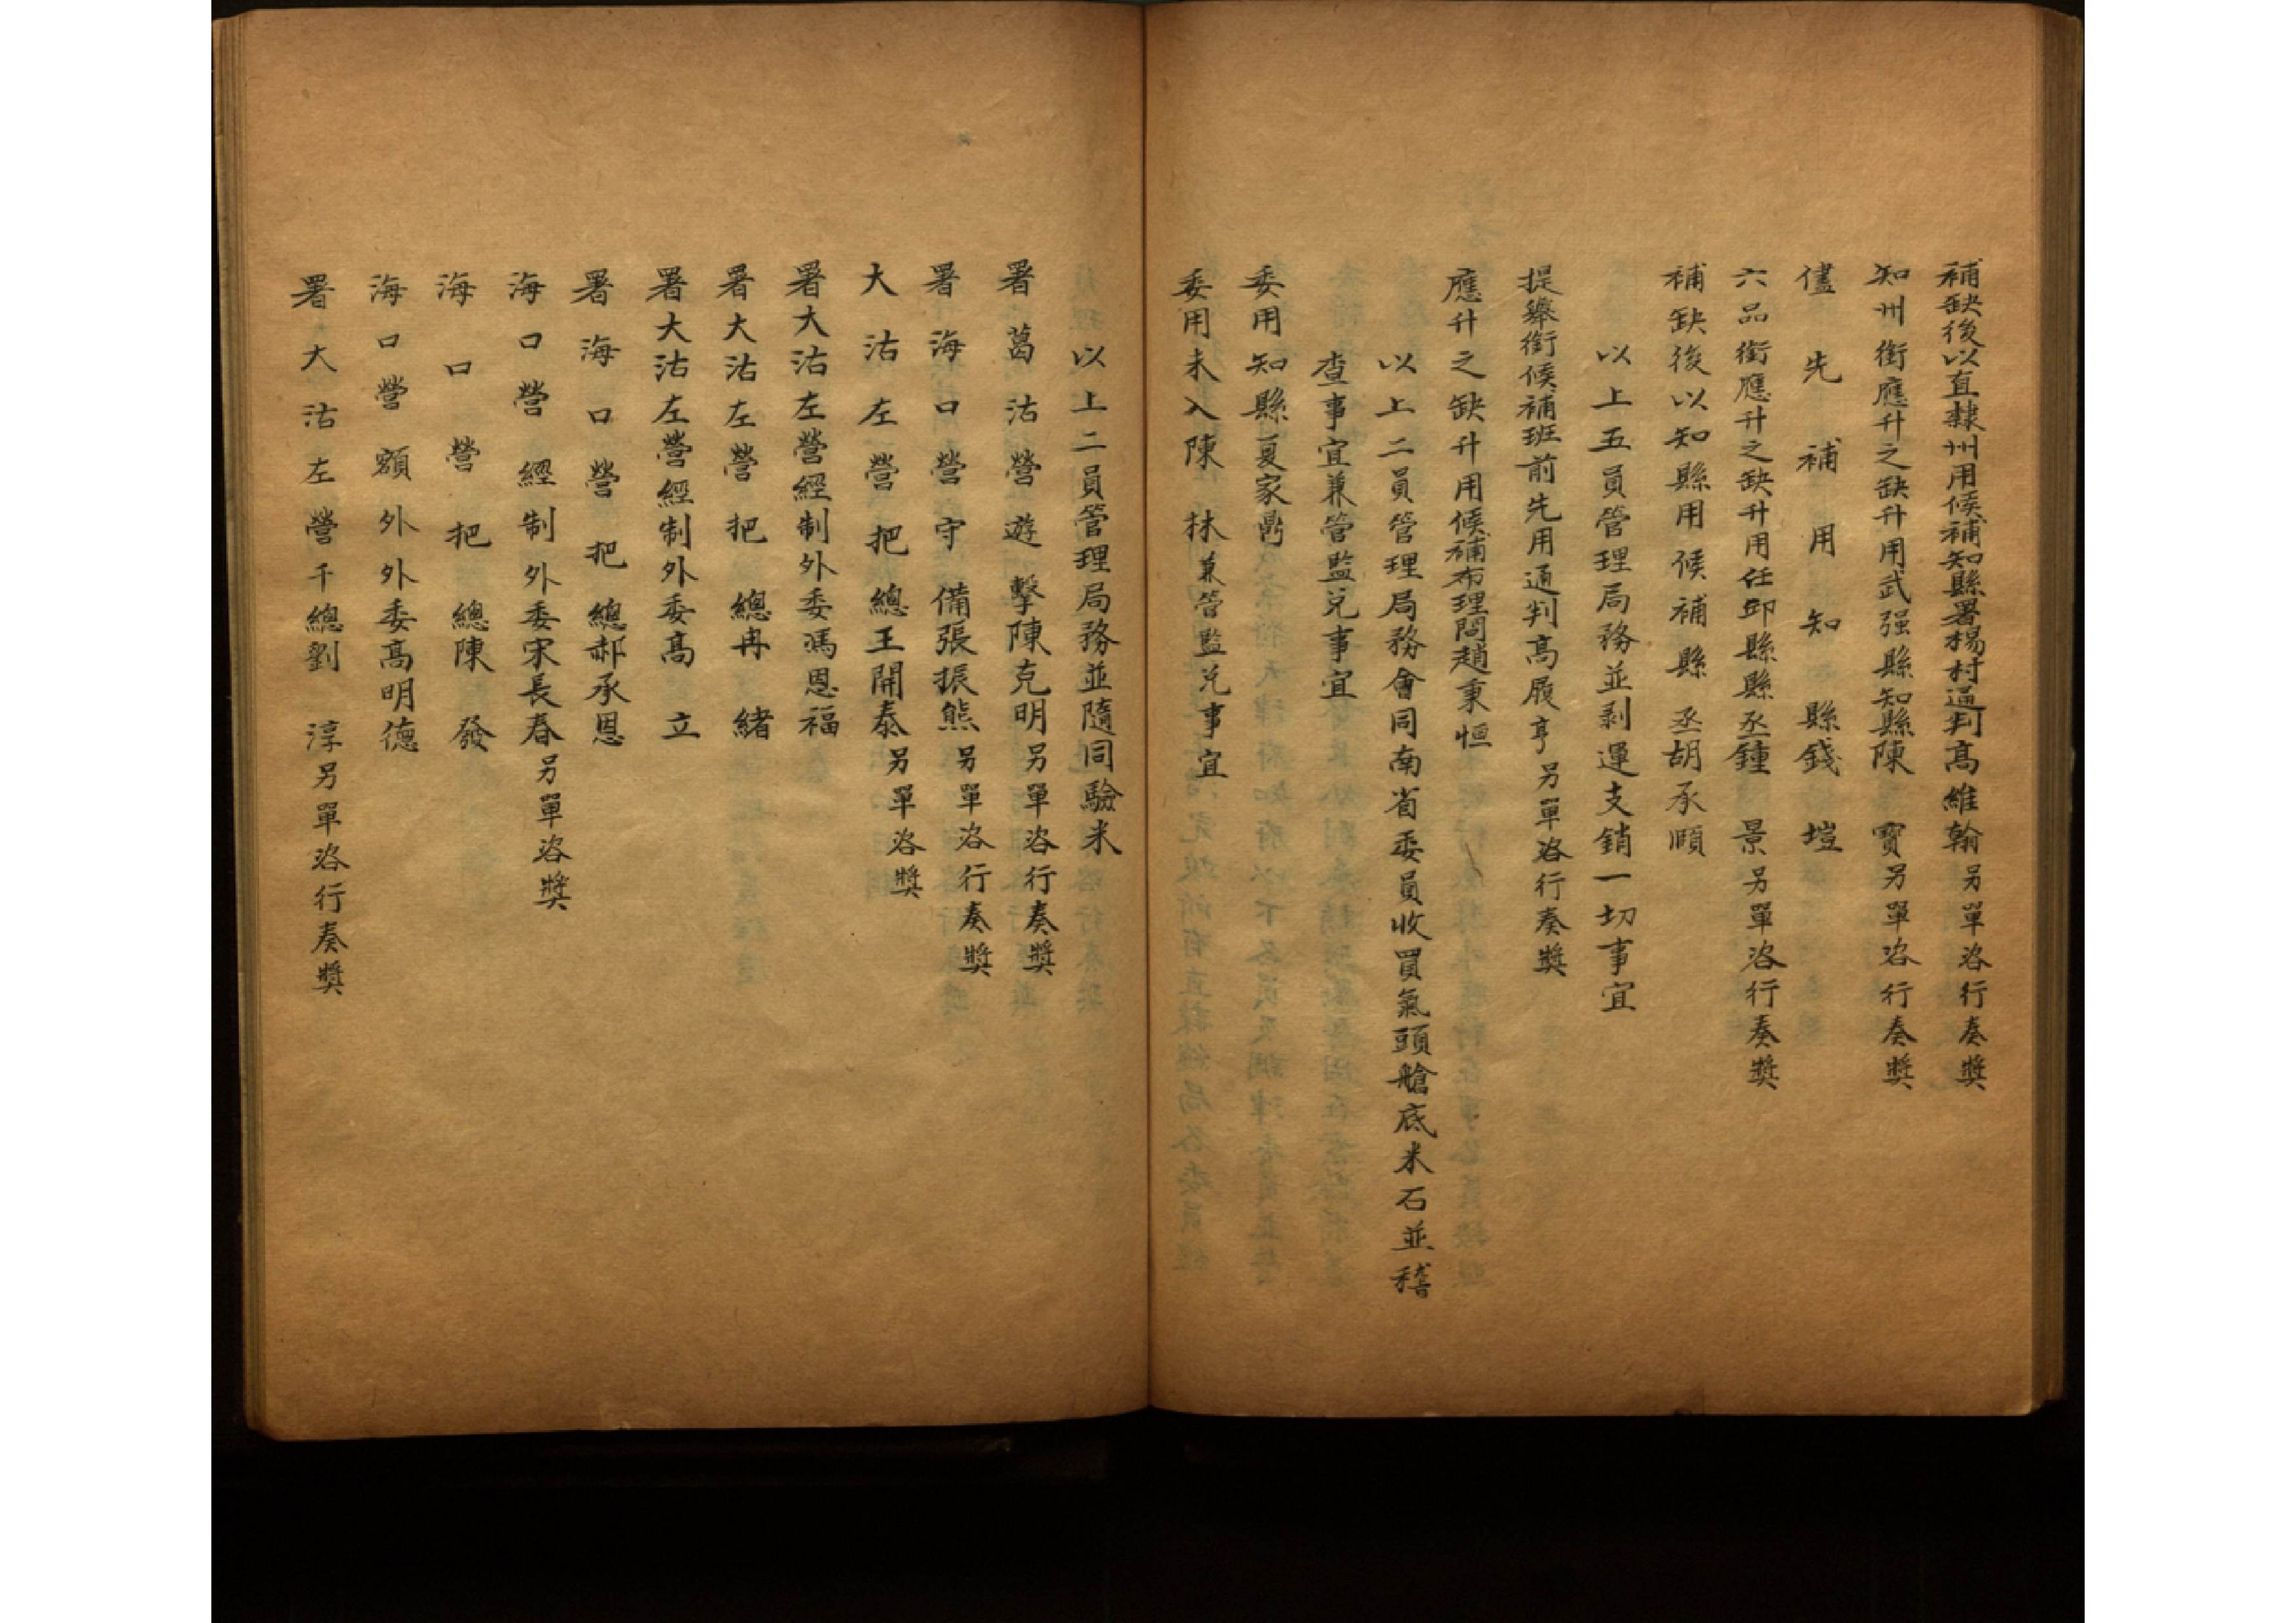 補缺後以直隸州用候補知縣署楊村通判高維翰另單咨行奏獎
知州銜應升之缺升用武强縣知縣陳寶另單咨行奏獎
儘先補用知縣錢塏
六品銜應升之缺升用任邱縣縣丞鍾景另單咨行奏獎
補缺後以知縣用候補縣丞胡承順
以上五員管理局務並剥運支銷一切事宜
提舉銜候補班前先用通判高履亨另單咨行奏獎
應升之缺升用候補布理問趙秉恒
以上二員管理局務會同南省委員收買氣頭艙底米石並稽
查事宜兼管監兌事宜
委用知縣夏家鼎
委用未入陳林兼管監兌事宜
以上二員管理局務並隨同驗米
署葛沽營遊擊陳克明另單咨行奏獎
署海口營守備張振熊另單咨行奏獎
大沽左營把總王開泰另單咨獎
署大沽左營經制外委馮恩福
署大沽左營把總冉緒
署大沽左營經制外委高立
署海口營把總郝承恩
海口營經制外委宋長春另單咨獎
海口營把總陳發
海口營額外外委高明德
署大沽左營千總劉淳另單咨行奏獎